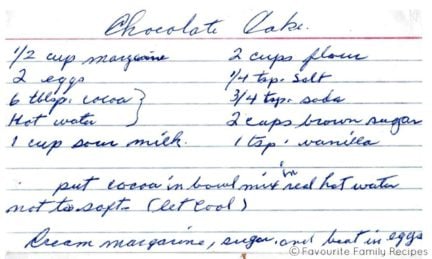 Chocolate Cake.
1/2 cup margarine 2 cups flour
2 eggs 1/4 tsp. Salt
6 tblsp. cocoa } 3/4 tsp. soda
Hot water } 2 cups brown sugar
1 cup sour milk. 1 tsp. vanilla
. put cocoa in bowl mix in real hot water
not to soft. (let cool)
Cream margarine, sugar, and beat in eggs
© Favourite Family Recipes